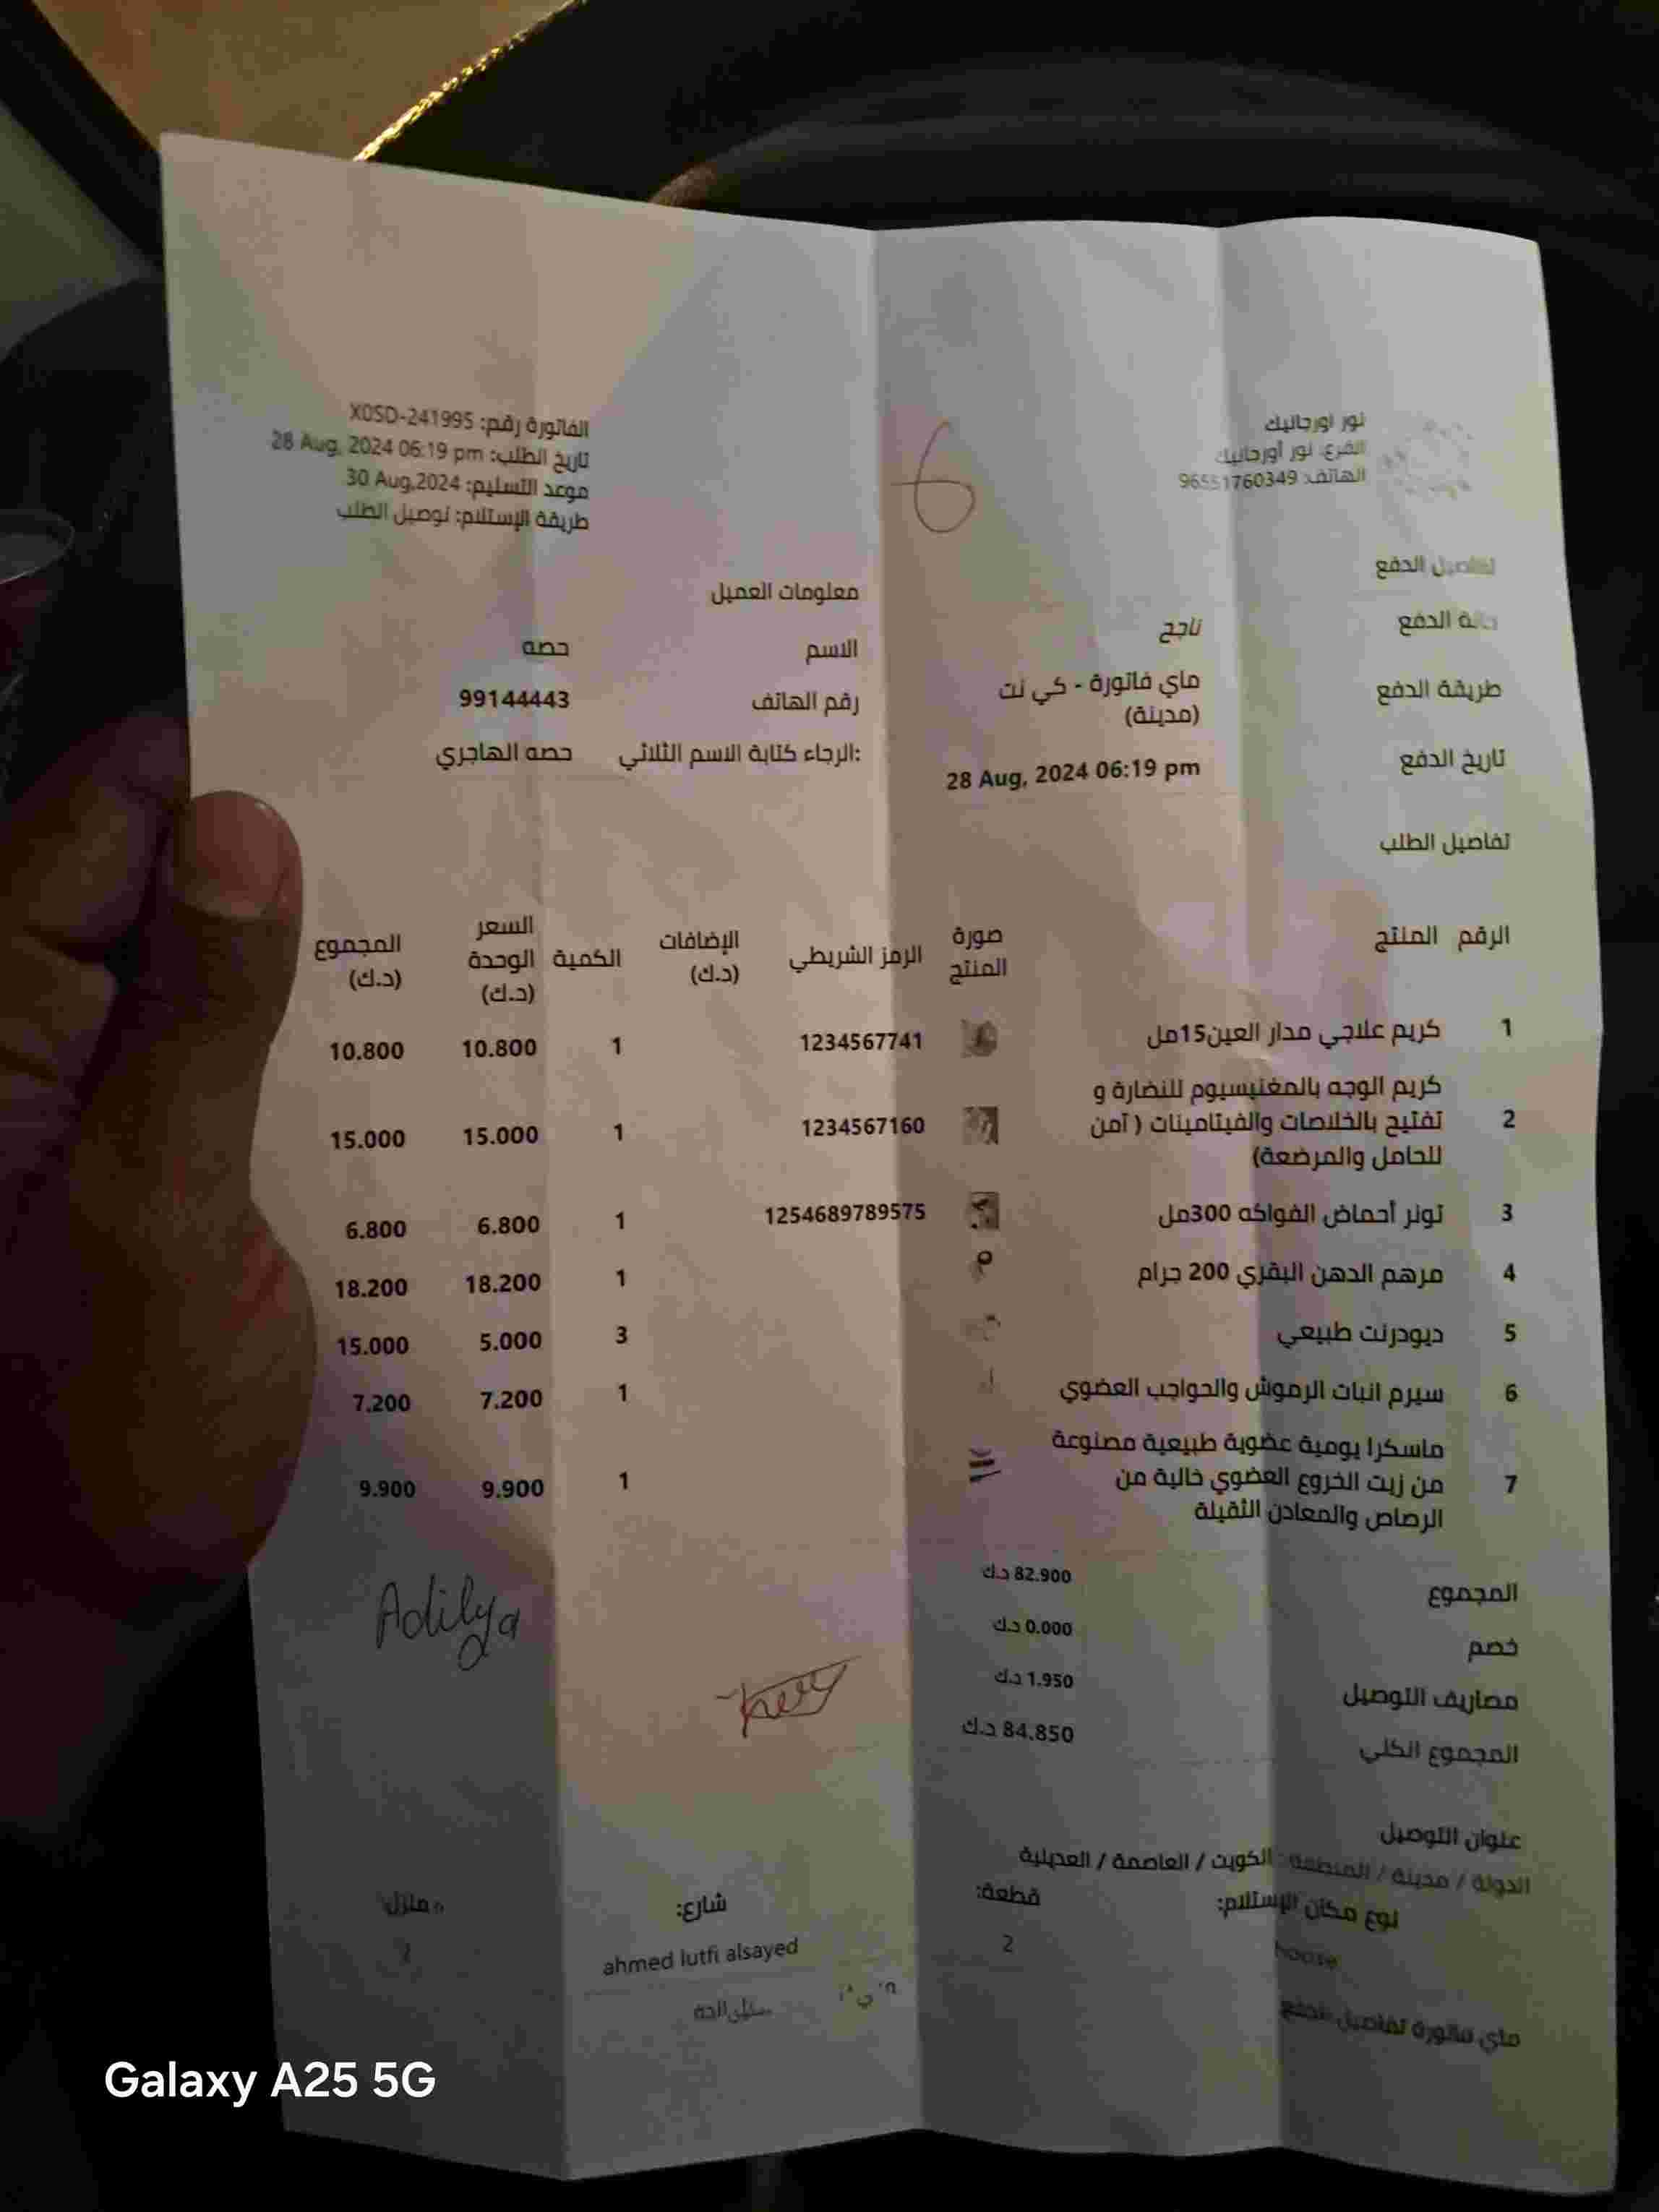 نور اورجانيك
الفرع: نور أورجانيك
الهاتف: 96551760349
الفاتورة رقم: X0SD-241995
تاريخ الطلب: 28 Aug, 2024 06:19 pm
موعد التسليم: 30 Aug,2024
طريقة الإستلام: توصيل الطلب
6
تفاصيل الدفع
حالة الدفع ناجح
طريقة الدفع ماي فاتورة - كي نت
(مدينة)
تاريخ الدفع 28 Aug, 2024 06:19 pm
معلومات العميل
الاسم حصه
رقم الهاتف 99144443
الرجاء كتابة الاسم الثلاثي: حصه الهاجري
تفاصيل الطلب
الرقم المنتج صورة المنتج الرمز الشريطي الإضافات (د.ك) الكمية السعر الوحدة (د.ك) المجموع (د.ك)
1 كريم علاجي مدار العين15مل 1234567741 1 10.800 10.800
كريم الوجه بالمغنيسيوم للنضارة و
2 تفتيح بالخلاصات والفيتامينات ( آمن 1234567160 1 15.000 15.000
للحامل والمرضعة)
3 تونر أحماض الفواكه 300مل 1254689789575 1 6.800 6.800
4 مرهم الدهن البقري 200 جرام 1 18.200 18.200
5 ديودرنت طبيعي 3 5.000 15.000
6 سيرم انبات الرموش والحواجب العضوي 1 7.200 7.200
ماسكرا يومية عضوية طبيعية مصنوعة
7 من زيت الخروع العضوي خالية من 1 9.900 9.900
الرصاص والمعادن الثقيلة
المجموع 82.900 د.ك
خصم 0.000 د.ك
مصاريف التوصيل 1.950 د.ك
المجموع الكلي 84.850 د.ك
Adilya
عنوان التوصيل
الدولة / مدينة / المنطقة: الكويت / العاصمة / العديلية
نوع مكان الإستلام: قطعة: شارع: منزل:
house 2 ahmed lutfi alsayed
ماي فاتورة تفاصيل الدفع
Galaxy A25 5G